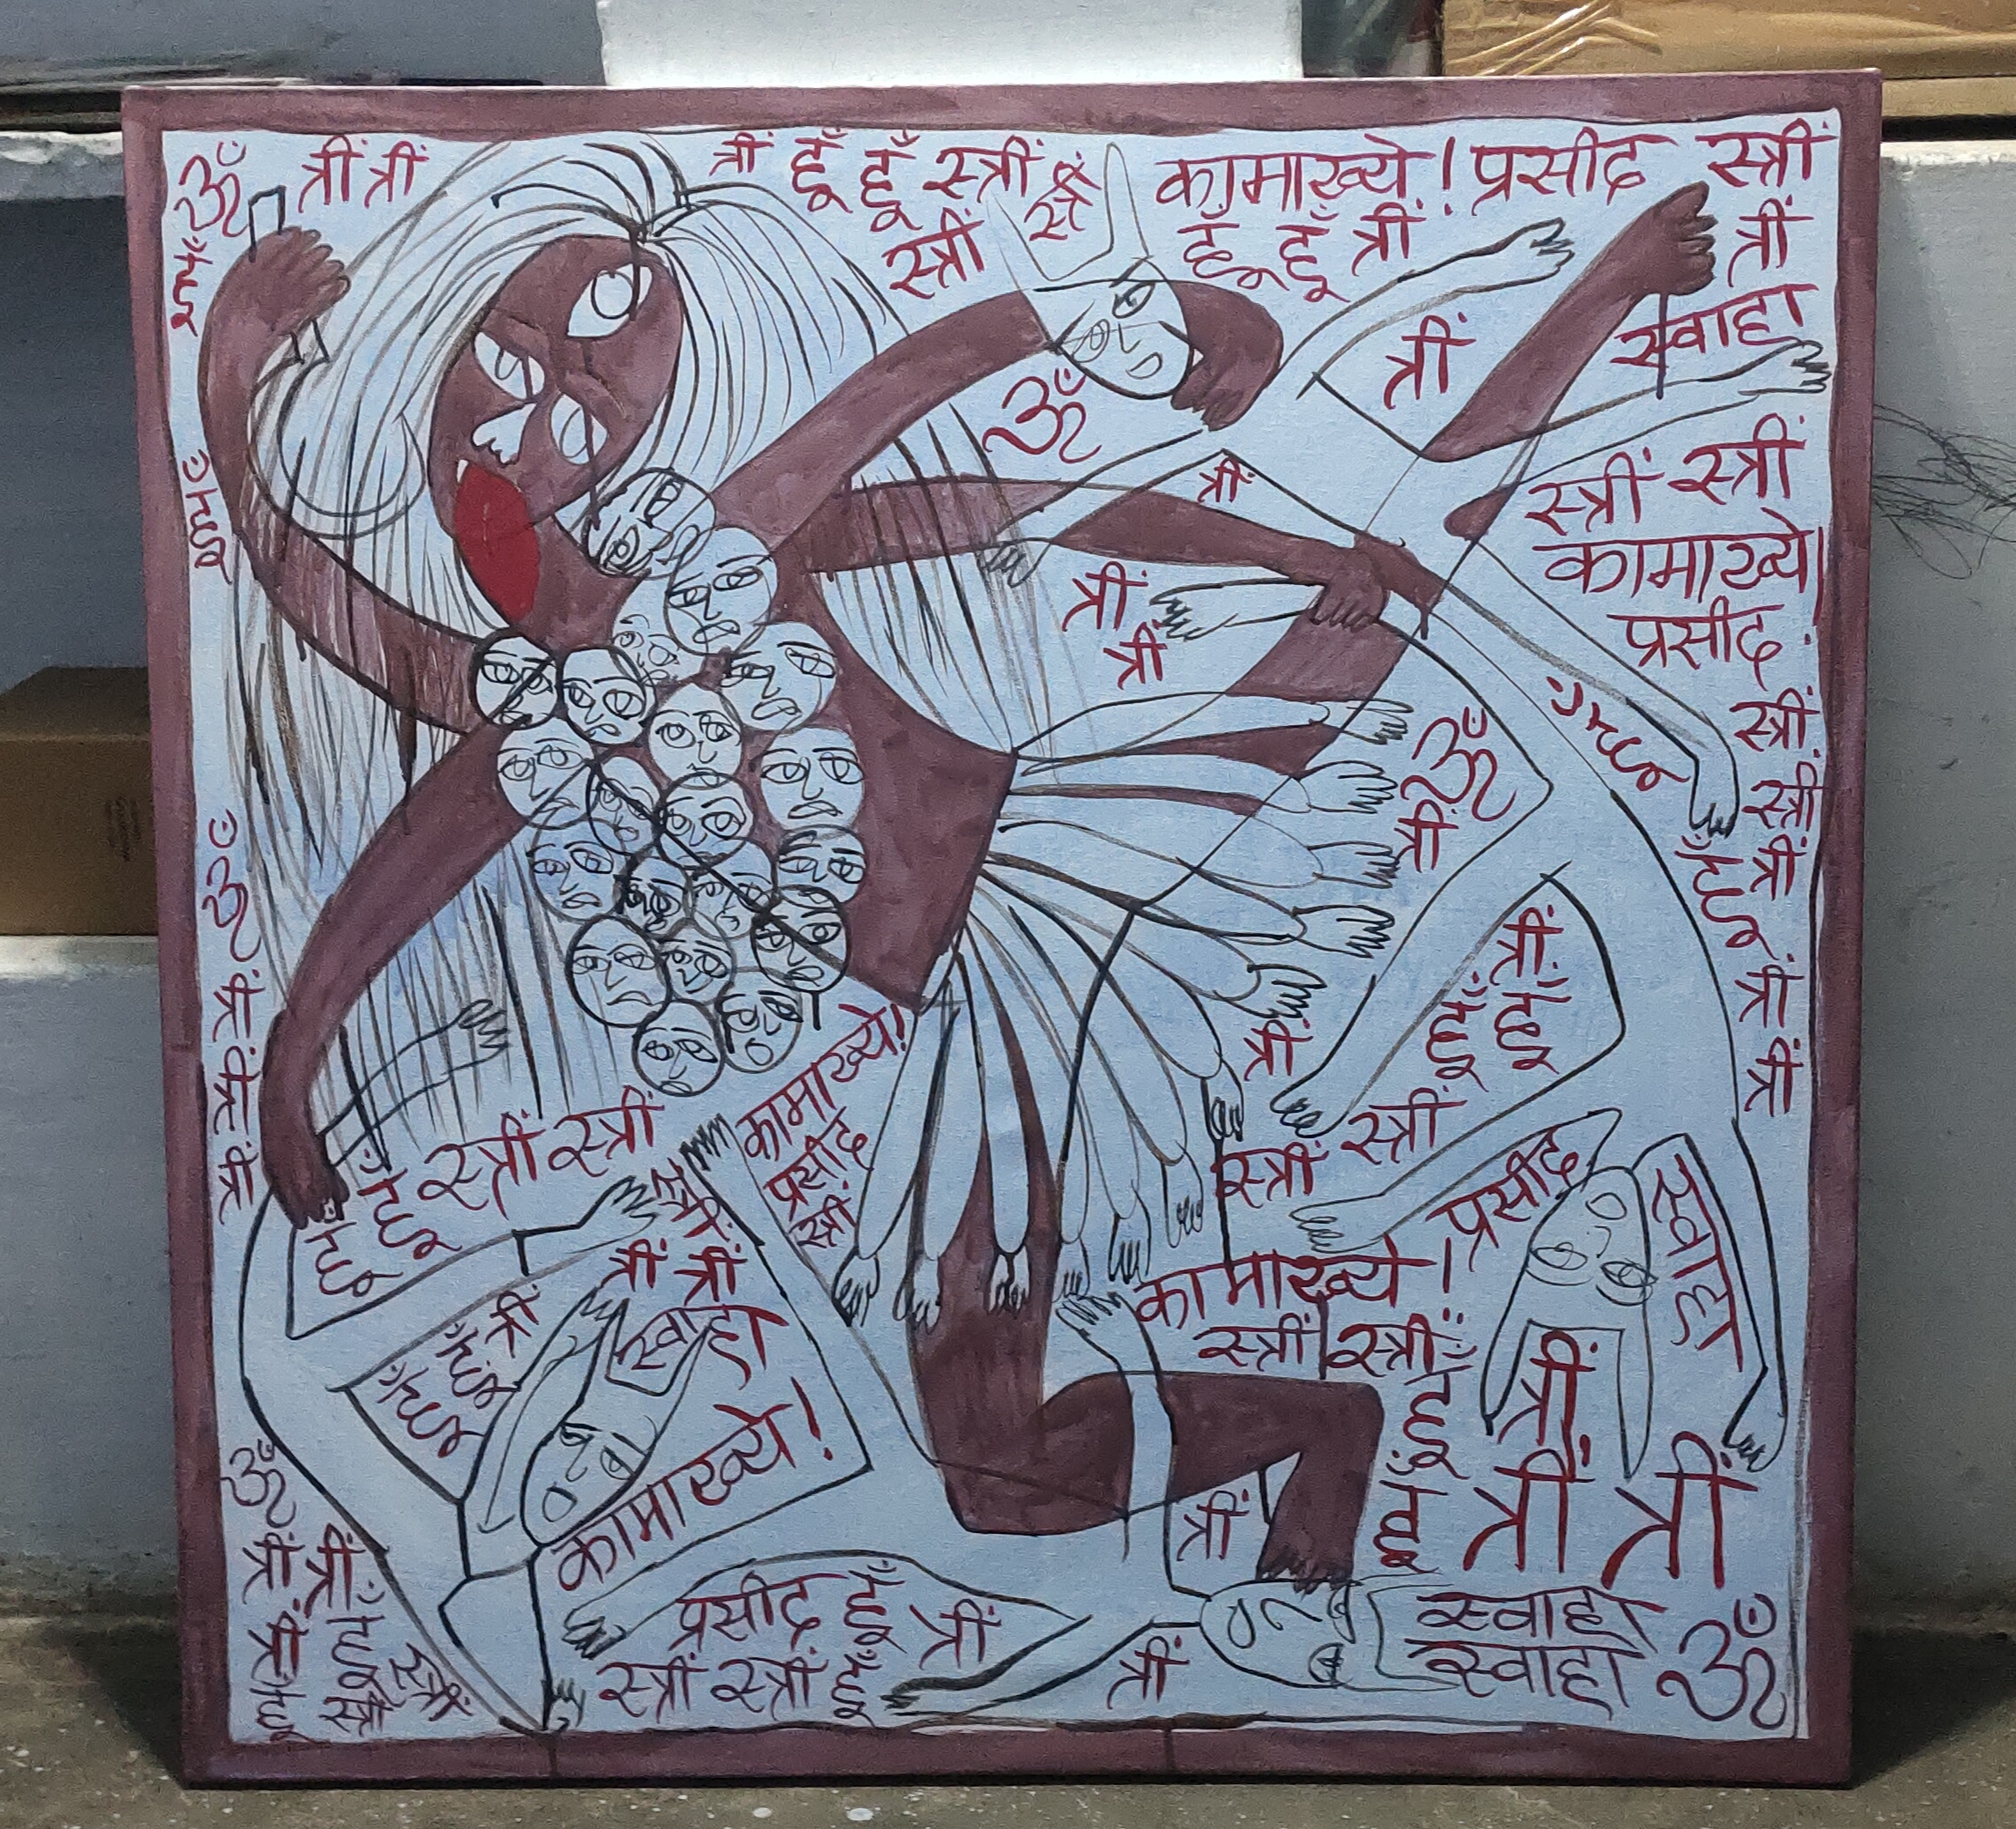 ॐ त्रीं त्रीं
त्रीं हूँ हूँ स्त्रीं स्त्रीं
स्त्रीं
कामाख्ये! प्रसीद स्त्रीं
हूँ हूँ त्रीं
त्रीं
स्वाहा
हूँ
त्रीं
ॐ
हूँ
त्रीं
स्त्रीं स्त्रीं
कामाख्ये!
प्रसीद
स्त्रीं
स्त्रीं
त्रीं
त्रीं
त्रीं
त्रीं
त्रीं
हूँ
हूँ
ॐ
त्रीं
ॐ
त्रीं
त्रीं
त्रीं
त्रीं
हूँ हूँ
त्रीं
स्त्रीं स्त्रीं
कामाख्ये!
प्रसीद
स्त्रीं
हूँ
हूँ
स्त्रीं स्त्रीं
स्त्रीं
त्रीं त्रीं
स्वाहा
त्रीं
हूँ
हूँ
कामाख्ये!
प्रसीद
स्वाहा
कामाख्ये!
स्त्रीं स्त्रीं
हूँ
हूँ
त्रीं
त्रीं त्रीं
त्रीं
ॐ
त्रीं त्रीं
त्रीं हूँ
हूँ स्त्रीं स्त्रीं
प्रसीद हूँ
स्त्रीं स्त्रीं हूँ
त्रीं
त्रीं
स्वाहा
स्वाहा
ॐ